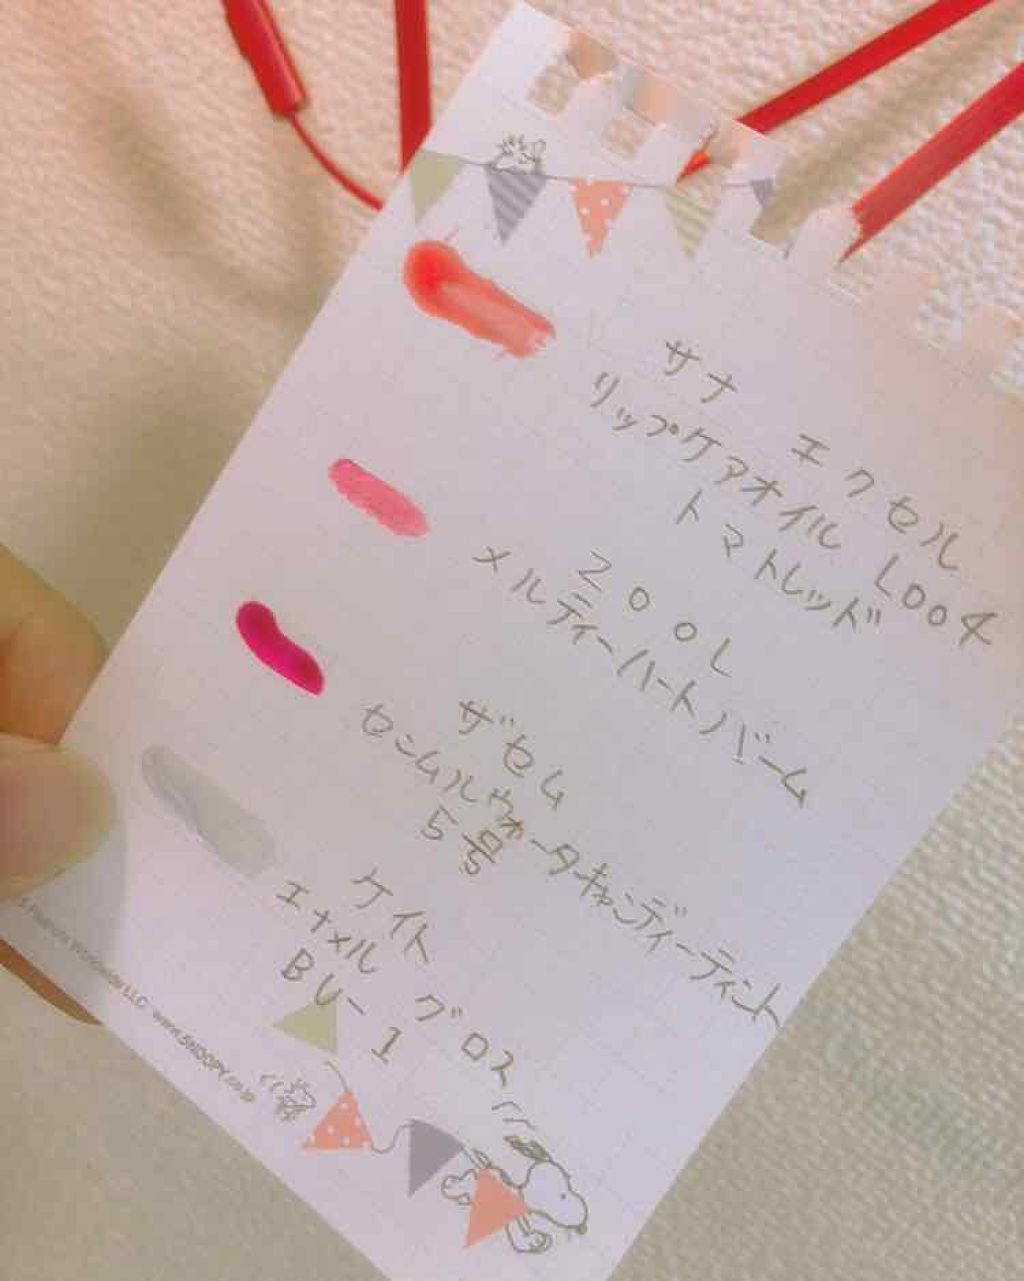 サナ エクセル
リップケアオイル L004
トマトレッド
ZOOL
メルティーハートバーム
ザセム
センムルウォータキャンディーティント
5号
ケイト
エナメル グロス
BU-1
Peanuts Worldwide LLC www.SNOOPY.co.jp